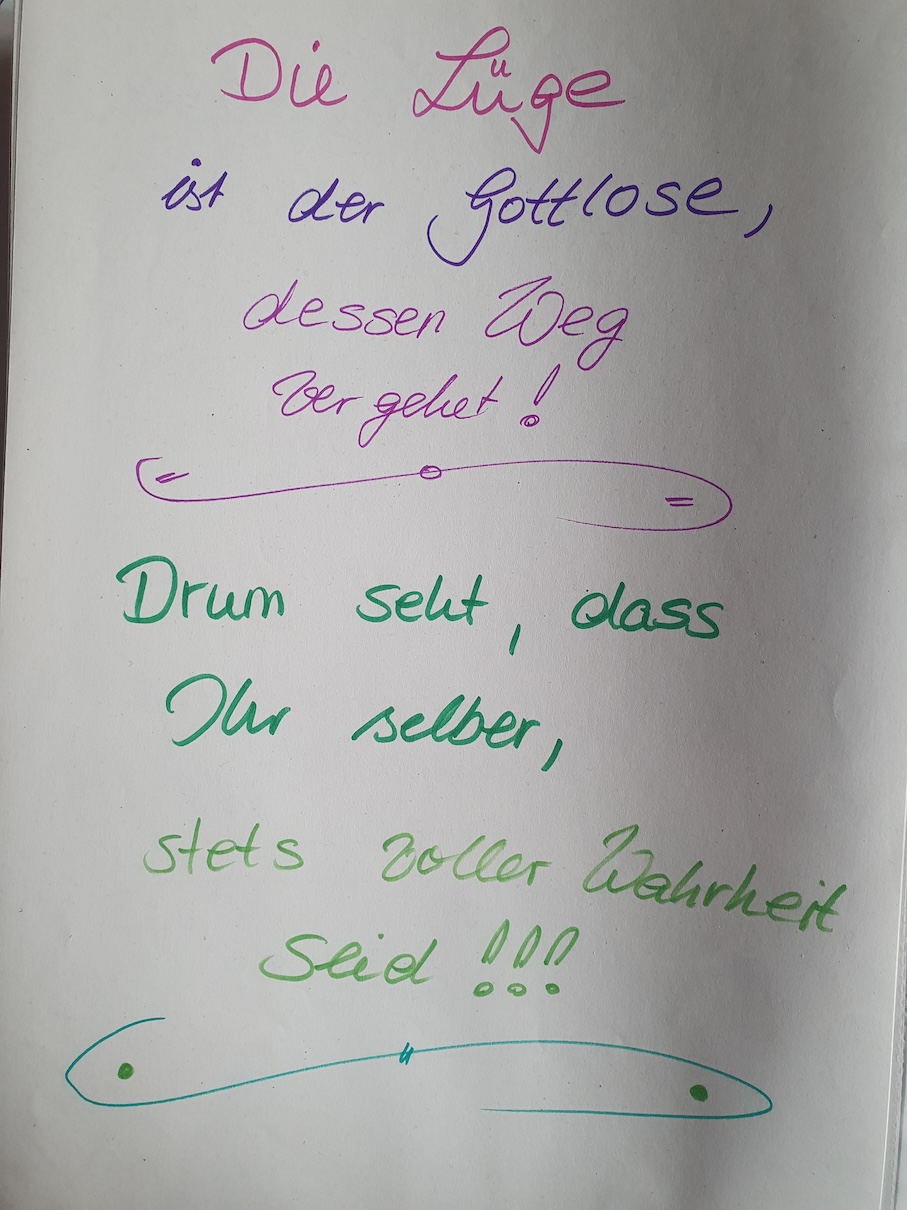 Die Lüge
ist der Gottlose,
dessen Weg
vergehet!
Drum seht, dass
Ihr selber,
stets voller Wahrheit
Seid !!!